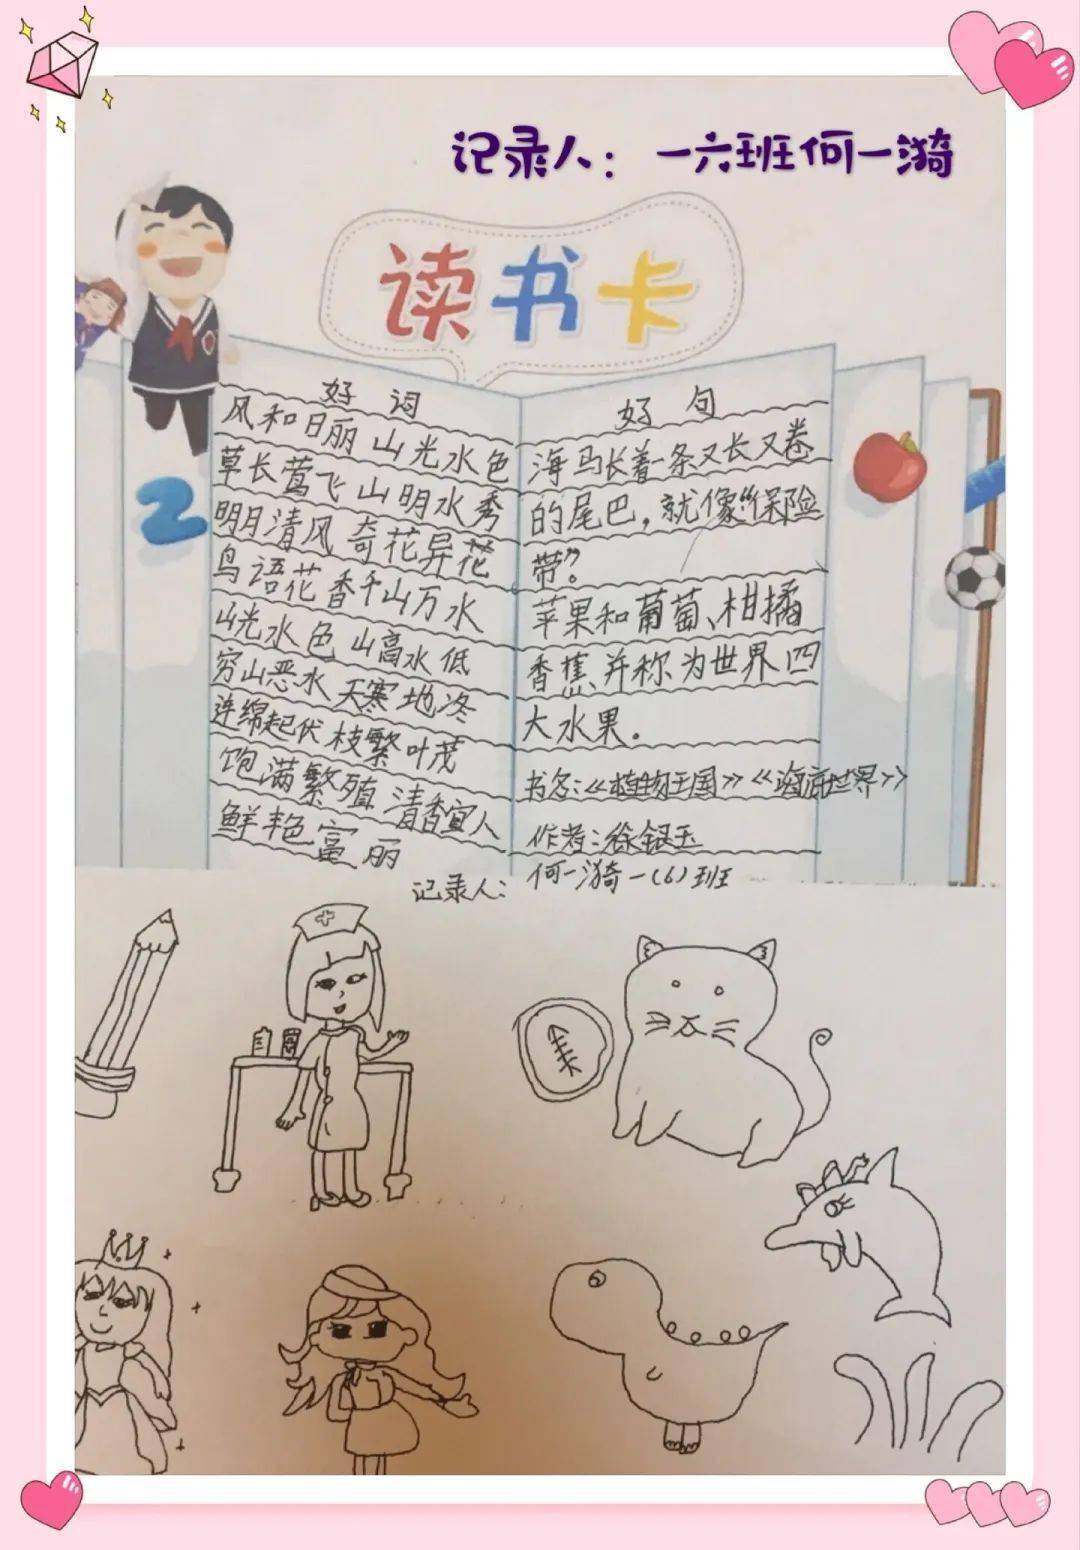 记录人： 一六班何一漪
读书卡
好 词
风和日丽 山光水色
草长莺飞 山明水秀
明月清风 奇花异花
鸟语花香千山万水
山光水色 山高水低
穷山恶水 天寒地冻
连绵起伏 枝繁叶茂
饱满繁殖 清香宜人
鲜艳富丽
好 句
海马长着一条又长又卷
的尾巴，就像“保险
带”。
苹果和葡萄、柑橘
香蕉并称为世界四
大水果。
书名：《植物王国》《海底世界》
作者：徐银玉
记录人： 何一漪一（6）班
2